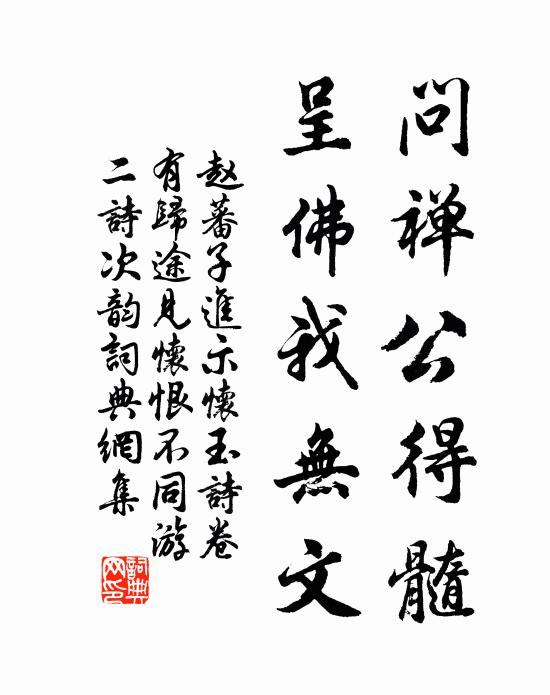 問禅公得髓
呈佛我無文
赵蕃子進示懷玉詩卷
有歸途見懷恨不同游
二詩次韵詞典網集
詞典網印